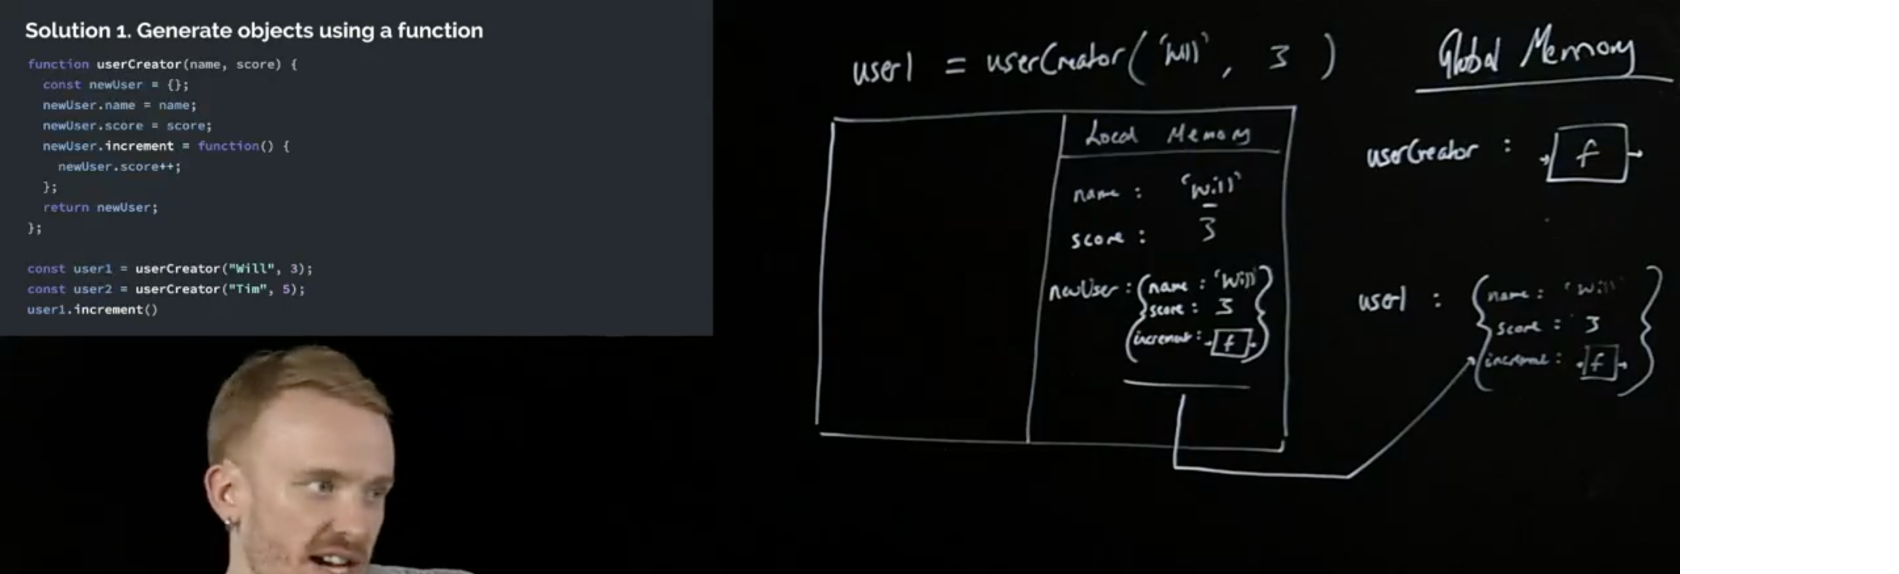 Solution 1. Generate objects using a function
function userCreator(name, score) {
const newUser = {};
newUser.name = name;
newUser.score = score;
newUser.increment = function() {
newUser.score++;
};
return newUser;
};
const user1 = userCreator("Will", 3);
const user2 = userCreator("Tim", 5);
user1.increment()
user1 = userCreator('Will', 3)
Local Memory
name : 'Will'
score : 3
newUser : { name : 'Will'
score : 3
increment : f }
Global Memory
userCreator : f
user1 : { name : 'Will'
score : 3
increment : f }